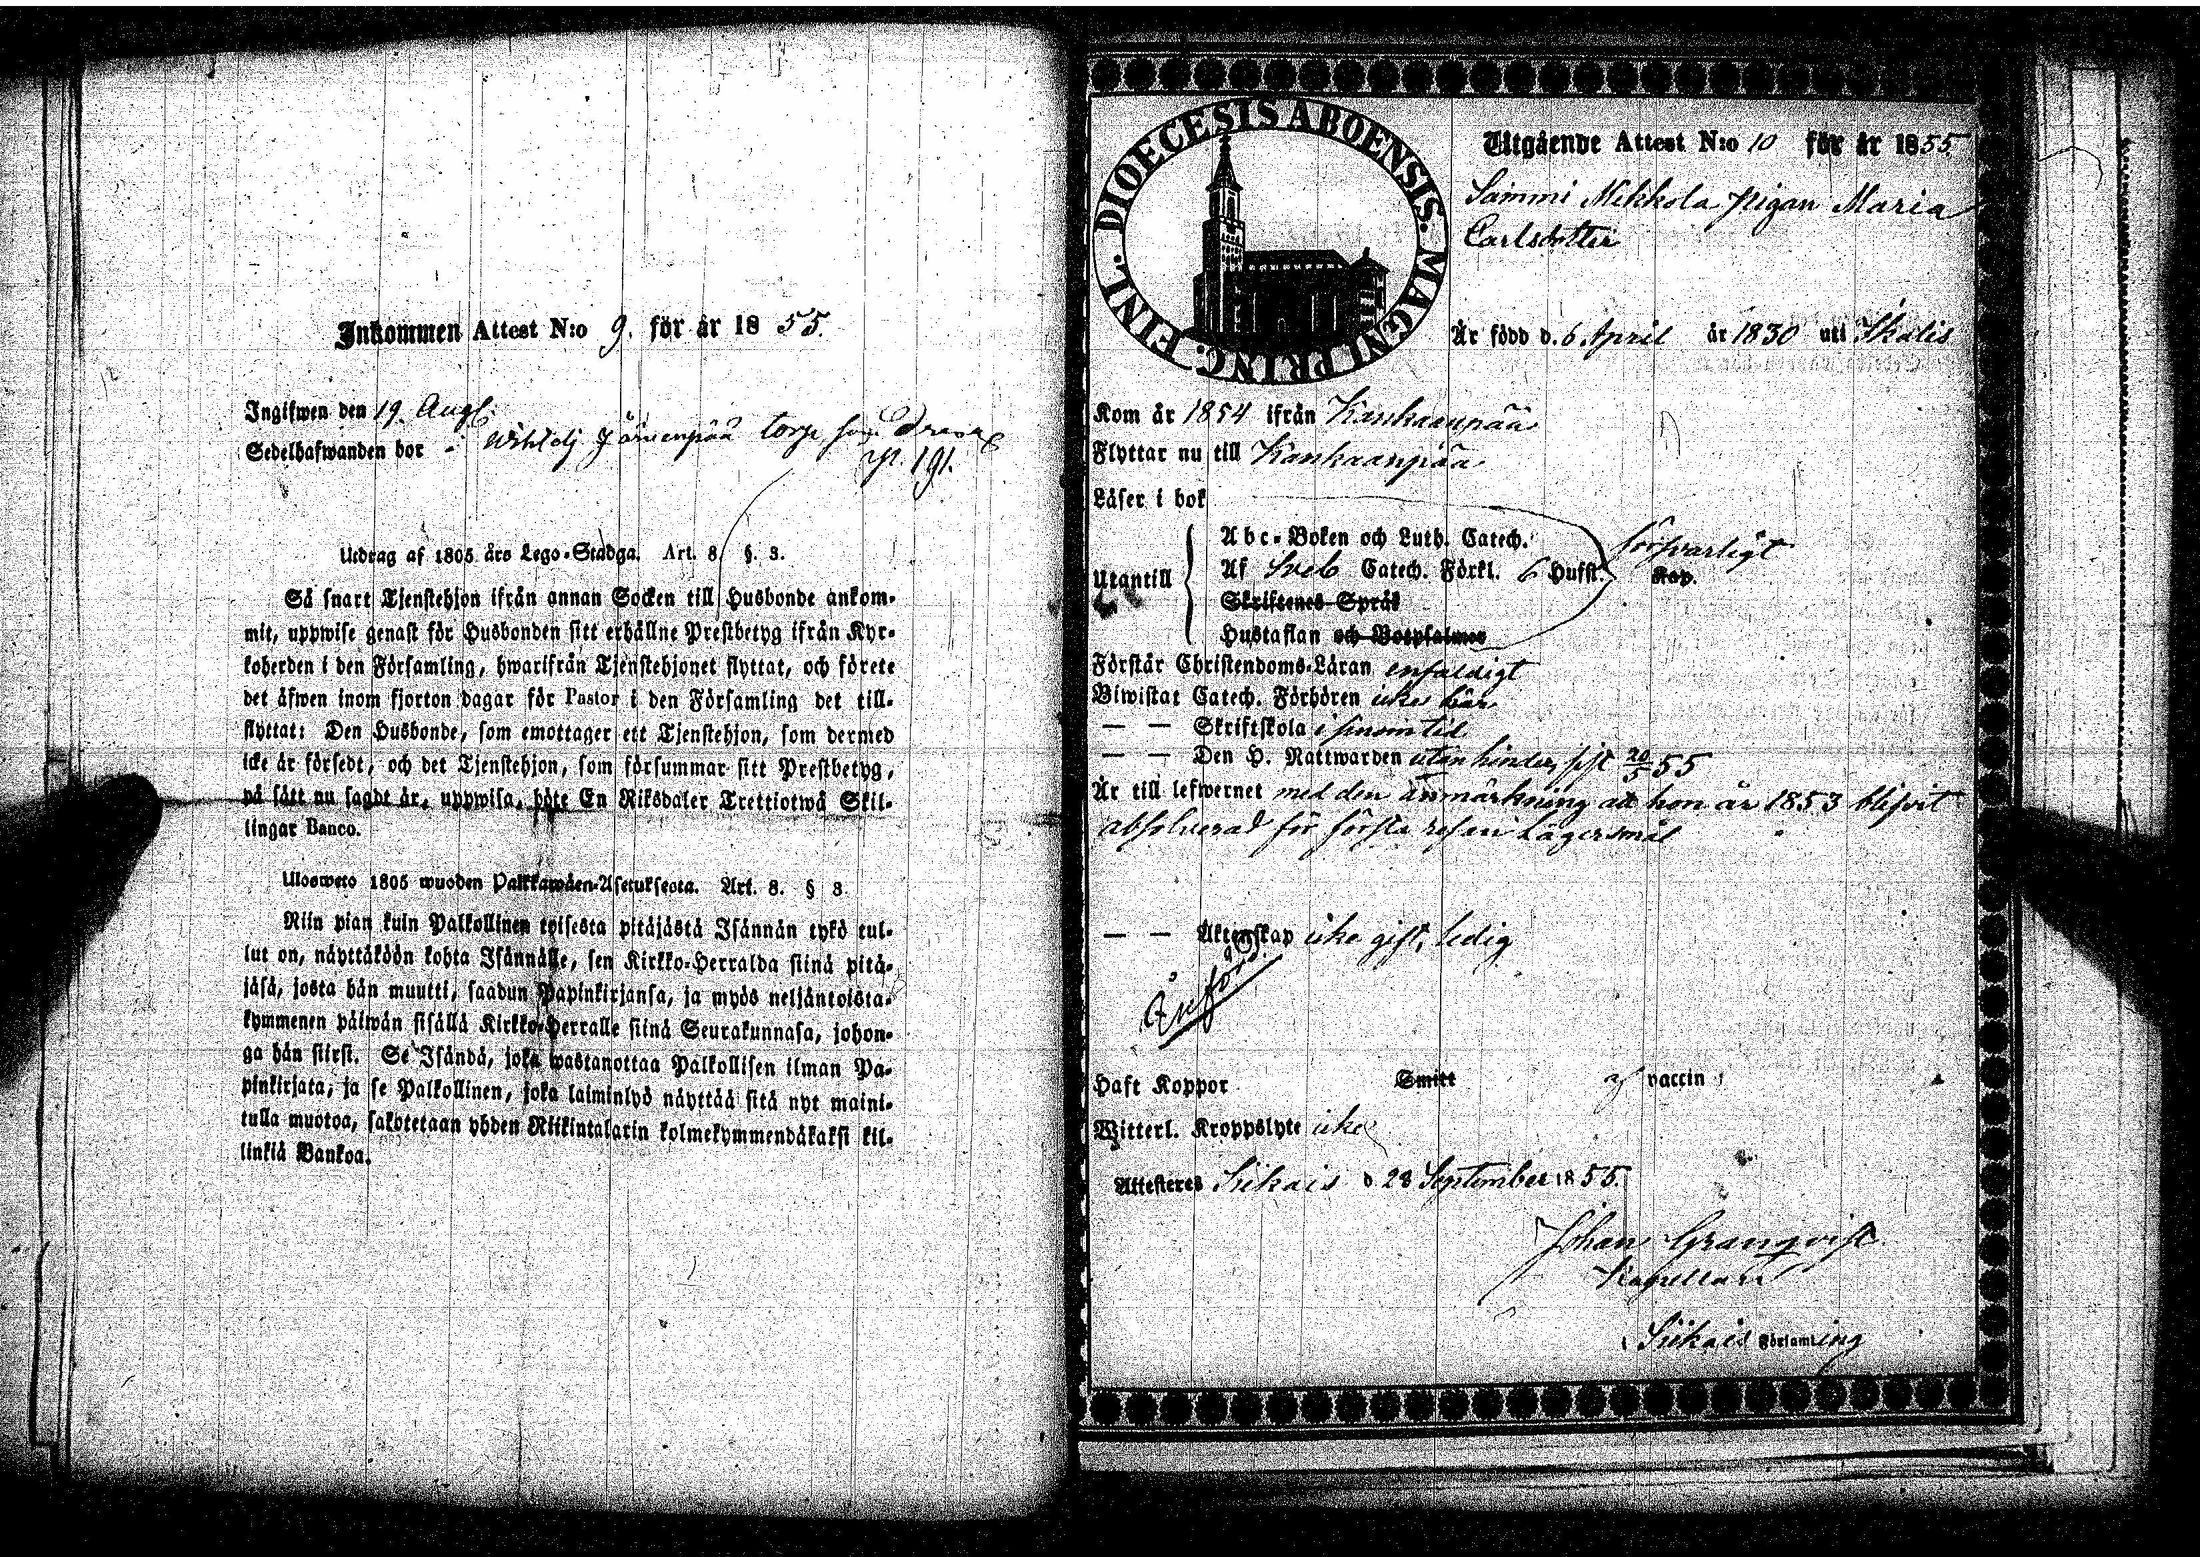 Inkommen Attest N:o 9. för år 1855.
Ingifwen den 19. Aug.
Sedelhafwanden bor i Järvenpää torp som Dreng
p. 191.
Utdrag af 1805 års Lego-Stadga. Art. 8. §. 3.
Så snart Tjenstehjon ifrån annan Socken till Husbonde ankom-
mit, uppwise genast för Husbonden sitt erhållne Prestbetyg ifrån Kyr-
koherden i den Församling, hwarifrån Tjenstehjonet flyttat, och förete
det äfwen inom fjorton dagar för Pastor i den Församling det till-
flyttat: Den Husbonde, som emottager ett Tjenstehjon, som dermed
icke är försedt, och det Tjenstehjon, som försummar sitt Prestbetyg,
på sätt nu sagdt är, uppwisa, böte En Riksdaler Trettiotwå Skil-
lingar Banco.
Ulosweto 1805 wuoden Palkkawäen-Asetuksesta. Art. 8. § 3.
Niin pian kuin Palkollinen toisesta pitäjästä Isännän tykö tul-
lut on, näyttäköön kohta Isännälle, sen Kirkko-Herralda siinä pitä-
jäsä, josta hän muutti, saadun Papinkirjansa, ja myös neljäntoista-
kymmenen päiwän sisällä Kirkko-Herralle siinä Seurakunnasa, johon-
ga hän siirsi. Se Isändä, joka wastanottaa Palkollisen ilman Pa-
pinkirjata, ja se Palkollinen, joka laiminlyö näyttää sitä nyt maini-
tulla muotoa, sakotetaan yhden Riikintalarin kolmekymmendäkaksi kil-
linkiä Bankoa.
DIOECESIS ABOENSIS. MAGNI PRINC. FINL.
Utgående Attest N:o 10 för år 1855.
Sammi Mikkola pigan Maria
Carlsdotter
Är född d. 6 April år 1830 uti Ikalis
Kom år 1854 ifrån Kankaanpää
Flyttar nu till Kankaanpää
Läser i bok
Utantill
Abc-Boken och Luth. Catech.
Af Sveb Catech. Förkl. 6 Hufst. Kap.
försvarligt
Skriftenes Språk
Hustaflan och Botpsalmer
Förstår Christendoms-Läran enfaldigt
Biwistat Catech. Förhören icke här
— — Skriftskola i sinom tid
— — Den H. Nattwarden utan hinder, sist 20/5 55
Är till lefwernet med den anmärkning att hon år 1853 blifvit
absolverad för första resan Lägersmål
— — Äktenskap icke gift, ledig
Införd
Haft Koppor Smitt af vaccin
Witterl. Kroppslyte icke
Attesteres Siikais d. 28 September 1855.
Johan Granqvist
Kapellan
i Siikais Församling